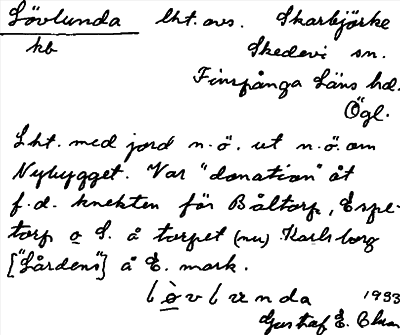 Lövlunda lht. avs. Skarbjörke
kb Skedevi sn.
Finspånga läns hd.
Ögl.
Lht. med jord n.ö. ut n.ö. om
Nybygget. Var "donation" åt
f.d. knekten för Båltorp, Espe-
torp o S. å torpet (nu) Karlsborg
["Lårdens"] å E. mark.
lòvlɯnda 1933
Gustaf E.